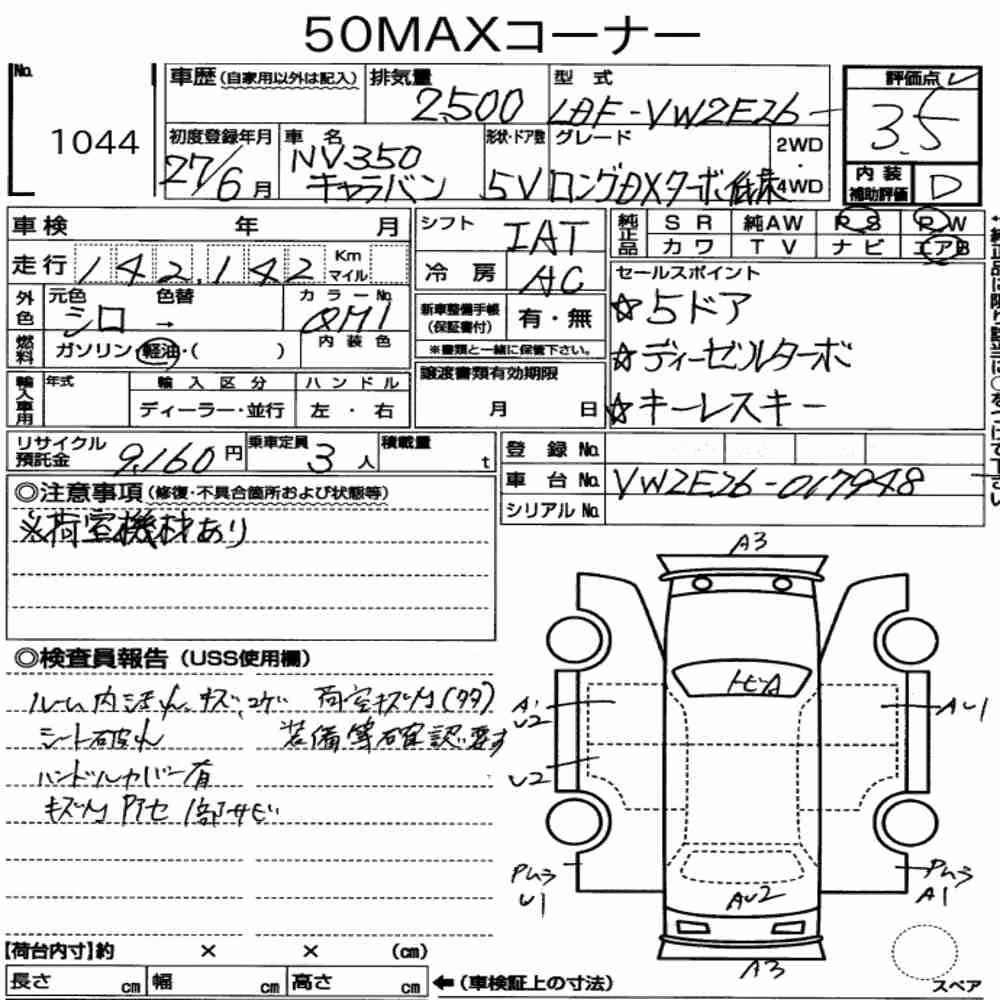 50MAXコーナー
No. 1044
車歴 (自家用以外は記入) 排気量 2500 型式 LDF-VW2E26 評価点 3.5
初度登録年月 27/6月 車名 NV350 キャラバン 形状・ドア数 5V グレード ロングDXターボ低床 2WD・4WD
内装補助評価 D
車検 年 月
走行 142,142 Km マイル
シフト IAT
冷房 AC
純正品 SR 純AW PS PW
カワ TV ナビ エアB
外色 元色 シロ 色替 → カラーNo. QM1
燃料 ガソリン・軽油・( ) 内装色
新車整備手帳 (保証書付) 有・無
※書類と一緒に保管下さい。
セールスポイント
☆5ドア
☆ディーゼルターボ
☆キーレスキー
輸入車用 年式 輸入区分 ハンドル
ディーラー・並行 左・右
譲渡書類有効期限
月 日
リサイクル預託金 9,160円 乗車定員 3人 積載量 t
登録No.
車台No. VW2E26-017948
シリアルNo.
◎注意事項 (修復・不具合箇所および状態等)
※荷室機材あり
◎検査員報告 (USS使用欄)
ルーム内ヨゴレ、キズ、コゲ 荷室キズ凹(多々)
シート破れ 装備等確認要す
ハンドルカバー有
キズ凹 P.アセ 1部サビ
A3
トビA
A1
U2
AU1
U2
Pムラ
U1
Pムラ
A1
AU2
A3
スペア
【荷台内寸】約 × × (cm)
長さ cm 幅 cm 高さ cm ←(車検証上の寸法)